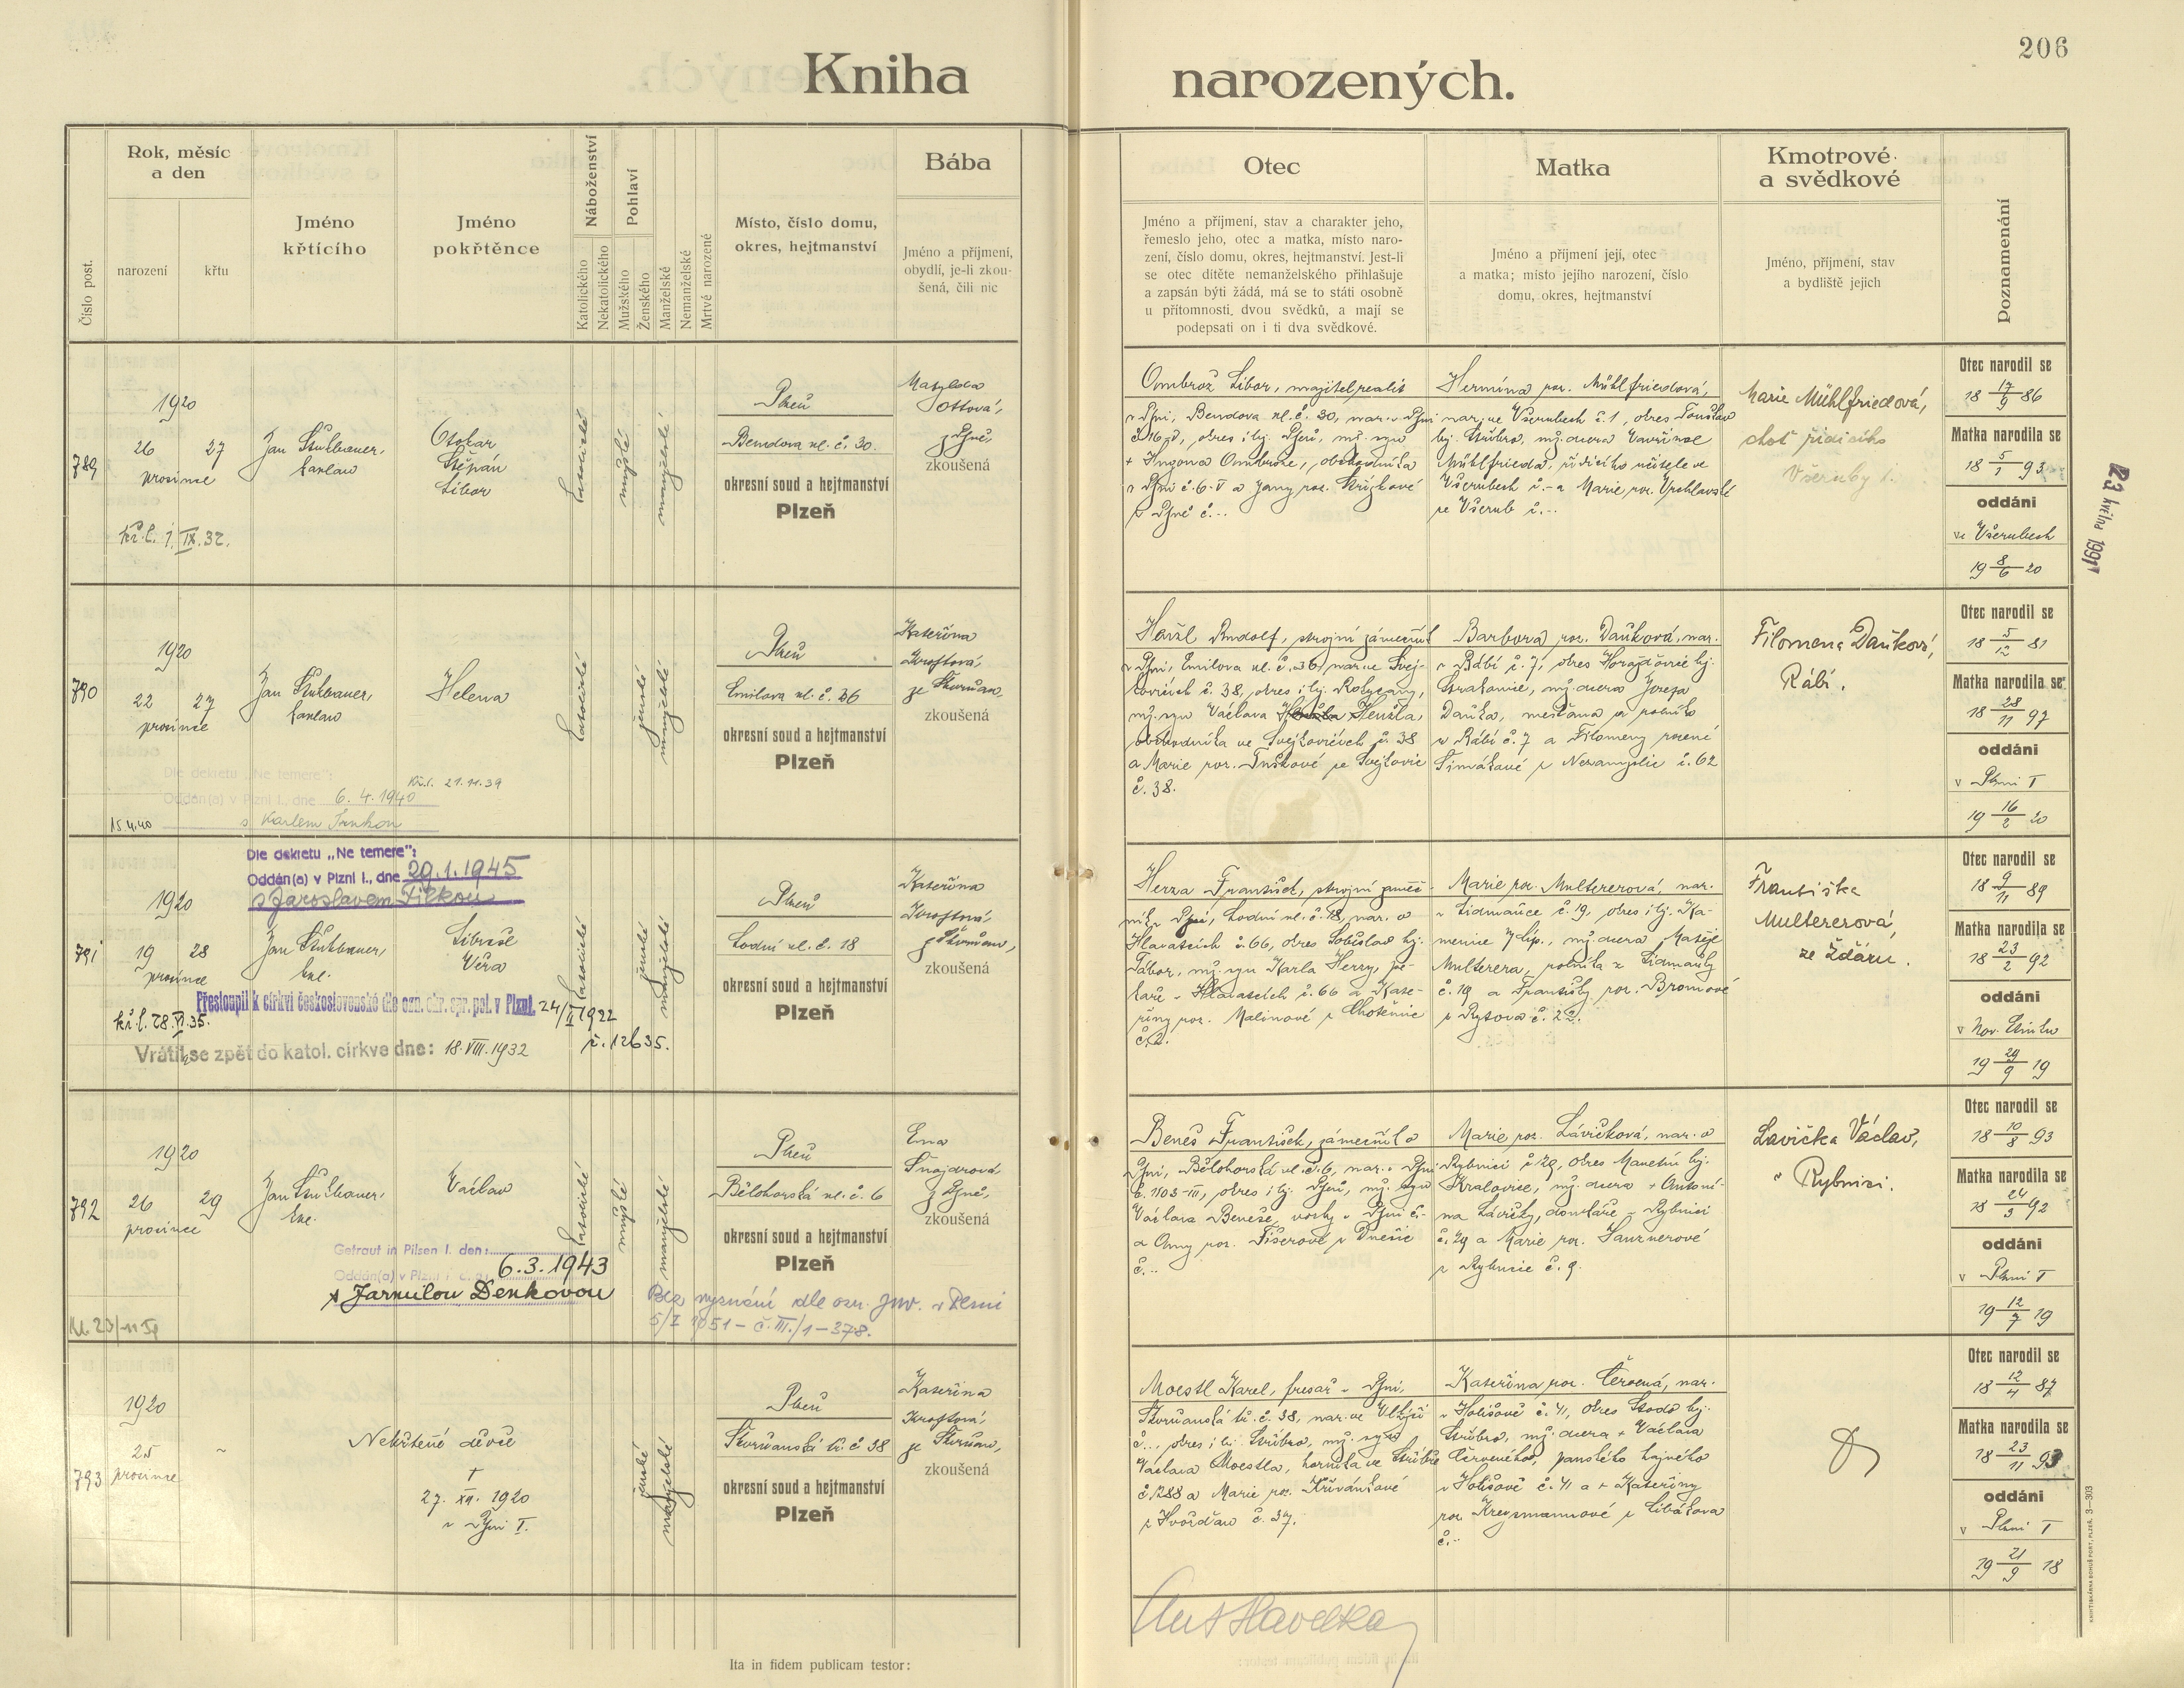 206
Kniha narozených.
Číslo post.
Rok, měsíc
a den
narození
křtu
Jméno
křtícího
Jméno
pokřtěnce
Náboženství
Katolického
Nekatolického
Pohlaví
Mužského
Ženského
Manželské
Nemanželské
Mrtvě narozené
Místo, číslo domu,
okres, hejtmanství
Bába
Jméno a příjmení,
obydlí, je-li zkou-
šená, čili nic
Otec
Jméno a příjmení, stav a charakter jeho,
řemeslo jeho, otec a matka, místo naro-
zení, číslo domu, okres, hejtmanství. Jest-li
se otec dítěte nemanželského přihlašuje
a zapsán býti žádá, má se to státi osobně
u přítomnosti dvou svědků, a mají se
podepsati on i ti dva svědkové.
Matka
Jméno a příjmení její, otec
a matka; místo jejího narození, číslo
domu, okres, hejtmanství
Kmotrové
a svědkové
Jméno, příjmení, stav
a bydliště jejich
Poznamenání
789
1920
26 27
prosince
kř. l. 1. IX. 32.
Jan Stuhlbauer,
kaplan
Otokar
Štěpán
Libor
katolické
mužské
manželské
Plzeň
Bendova ul. č. 30.
okresní soud a hejtmanství
Plzeň
Matylda
Ottová,
z Plzně,
zkoušená
Ombrož Libor, majitel realit
v Plzni, Bendova ul. č. 30, nar. v Plzni
okres i hj. Plzeň, mž. syn
+ Hugona Ombrože, obchodníka
v Plzni č. 6-V a Jany roz. Křížkové
z Plzně č. --
Hermína roz. Mühlfriedová,
nar. ve Všerubech č. 1, okres Touškov
hj. Stříbro, mž. dcera Vavřince
Mühlfrieda, řídícího učitele ve
Všerubech č. - a Marie roz. Vrchlavské
ze Všerub č. --
Marie Mühlfriedová,
choť řídícího
Všeruby 1.
Otec narodil se
18 17/9 86
Matka narodila se
18 5/1 93
oddáni
ve Všerubech
19 8/6 20
23. května 1991
790
1920
22 27
prosince
Jan Stuhlbauer,
kaplan
Helena
katolické
ženské
manželské
Kř. l. 21.11.39
Dle dekretu „Ne temere“:
Oddán(a) v Plzni I., dne 6. 4. 1940
s Karlem Trnkou
15.4.40
Plzeň
Emilova ul. č. 36
okresní soud a hejtmanství
Plzeň
Kateřina
Kroftová,
ze Skvrňan,
zkoušená
Rudolf, strojní zámečník
v Plzni, Emilova ul. č. 36, nar. ve Svej-
kovicích č. 38, okres i hj. Rokycany,
mž. syn Václava
obchodníka ve Svejkovicích č. 38
a Marie roz. Tuškové ze Svejkovic
č. 38.
Barbora roz. Daňková, nar.
v Rábí č. 7, okres Horažďovice hj.
Strakonice, mž. dcera Josefa
Daňka, měšťana a rolníka
v Rábí č. 7 a Filomeny rozené
Šimákové z Nezamyslic č. 62
Filomena Daňková,
Rábí.
Otec narodil se
18 5/12 81
Matka narodila se
18 28/11 97
oddáni
v Plzni I
19 16/2 20
791
Dle dekretu „Ne temere“:
Oddán(a) v Plzni I., dne 29.1.1945
s Jaroslavem Fičkou
1920
19 28
prosince
Jan Stuhlbauer,
kpl.
Libuše
Věra
katolické
ženské
manželské
Přestoupil k církvi československé dle ozn. okr. spr. pol. v Plzni. 24/II 1922
č. 12635.
kř. l. 28. VI. 35.
Vrátil se zpět do katol. církve dne: 18. VIII. 1932
Plzeň
Lodní ul. č. 18
okresní soud a hejtmanství
Plzeň
Kateřina
Kroftová,
ze Skvrňan,
zkoušená
Herza František, strojní zámeč-
ník v Plzni, Lodní ul. č. 18, nar. v
Hlavatcích č. 66, okres Soběslav hj.
Tábor, mž. syn Karla Herzy, pe-
kaře v Hlavatcích č. 66 a Kate-
řiny roz. Malinové z Chotěmic
č. 2.
Marie roz. Multererová, nar.
v Lidmaňce č. 19, okres i hj. Ka-
menice n/Lip., mž. dcera Matěje
Multerera, rolníka z Lidmaňky
č. 19 a Františky roz. Bromové
z Rytova č. 22.
Františka
Multererová,
ze Žďáru.
Otec narodil se
18 9/11 89
Matka narodila se
18 23/2 92
oddáni
v Nov. Etinku
19 29/9 19
792
1920
26 29
prosince
Jan Stuhlbauer,
kpl.
Václav
katolické
mužské
manželské
Getraut in Pilsen I. den:
Oddán(a) v Plzni I. dne: 6.3.1943
s Jarmilou Denkovou
Bez vyznání dle ozn. JNV. v Plzni
5/I 1951 - č. III./1-378.
Plzeň
Bělohorská ul. č. 6
okresní soud a hejtmanství
Plzeň
Ema
Šnajdrová,
z Plzně,
zkoušená
Beneš František, zámečník v
Plzni, Bělohorská ul. č. 6, nar. v Plzni
č. 1103-III, okres i hj. Plzeň, mž. syn
Václava Beneše, v Plzni č. -
a Anny roz. Fišerové z Dnešic
č. --
Marie roz. Lávičková, nar. v
Rybnici č. 29, okres Manětín hj.
Kralovice, mž. dcera + Antoní-
na Lávičky, domkáře v Rybnici
č. 29 a Marie roz. Sauznerové
z Rybnice č. 9.
Lavička Václav,
v Rybnici.
Otec narodil se
18 10/8 93
Matka narodila se
18 24/3 92
oddáni
v Plzni I
19 12/7 19
793
1920
25
prosince
Nekřtěné děvče
†
27. XII. 1920
v Plzni I.
ženské
manželské
Plzeň
Skvrňanská tř. č. 38
okresní soud a hejtmanství
Plzeň
Kateřina
Kroftová,
ze Skvrňan,
zkoušená
Moestl Karel, fresař v Plzni,
Skvrňanská tř. č. 38, nar. ve
č. --, okres i hj. Stříbro, mž. syn
Václava Moestla, horníka ve Stříbře
č. 1288 a Marie roz. Křivánkové
z Hvožďan č. 37.
Kateřina roz. Červená, nar.
v Holišově č. 41, okres Stodo hj.
Stříbro, mž. dcera + Václava
Červeného, panského hajného
v Holišově č. 41 a + Kateřiny
roz. Kreysmannové z Libákova
č. --
Otec narodil se
18 12/4 87
Matka narodila se
18 23/11 93
oddáni
v Plzni I
19 21/9 18
Ant Havelka
Ita in fidem publicam testor:
KNIHTISKÁRNA BOHUŠ PORT, PLZEŇ. 3—303